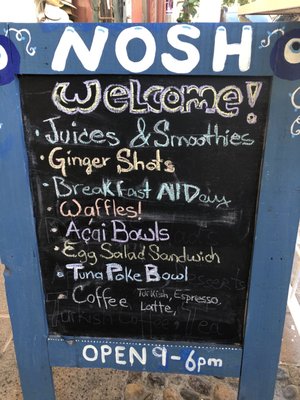 NOSH
Welcome!
• Juices & Smoothies
• Ginger Shots
• Breakfast All Day
• Waffles!
• Açai Bowls
• Egg Salad Sandwich
• Tuna Poke Bowl
• Coffee Turkish, Espresso,
Latte,
NOSH OPEN 9-6pm